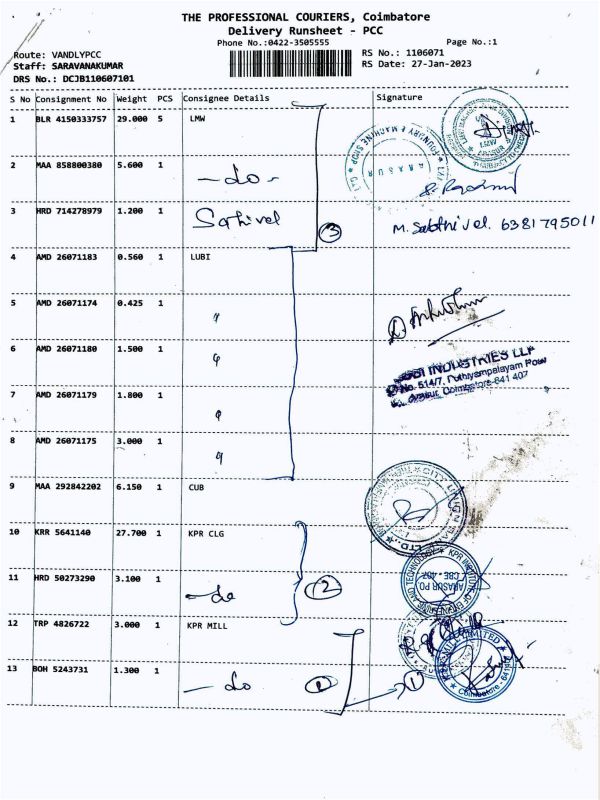 THE PROFESSIONAL COURIERS, Coimbatore
Delivery Runsheet - PCC
Phone No.:0422-3505555
Page No.:1
Route: VANDLYPCC
Staff: SARAVANAKUMAR
DRS No.: DCJB110607101
RS No.: 1106071
RS Date: 27-Jan-2023
S No Consignment No Weight PCS Consignee Details Signature
1 BLR 4150333757 29.000 5 LMW
2 MAA 858800380 5.600 1 - do -
3 HRD 714278979 1.200 1 Sathivel ③ M. Sakthivel. 6381795011
4 AMD 26071183 0.560 1 LUBI
5 AMD 26071174 0.425 1 "
6 AMD 26071180 1.500 1 "
INDUSTRIES LLP
No. 514/7, Pothiyampalayam Road
Arasur, Coimbatore-641 407
7 AMD 26071179 1.800 1 "
8 AMD 26071175 3.000 1 "
9 MAA 292842202 6.150 1 CUB
CITY UNION BANK LTD.
10 KRR 5641140 27.700 1 KPR CLG
KPR INSTITUTE OF ENGINEERING AND TECHNOLOGY
ARASUR PO
CBE - 407
11 HRD 50273290 3.100 1 - do ②
12 TRP 4826722 3.000 1 KPR MILL
13 BOH 5243731 1.300 1 - do ① ①
MILL LIMITED
Coimbatore - 641
FOUNDRY & MACHINE SHOP
ARASUR